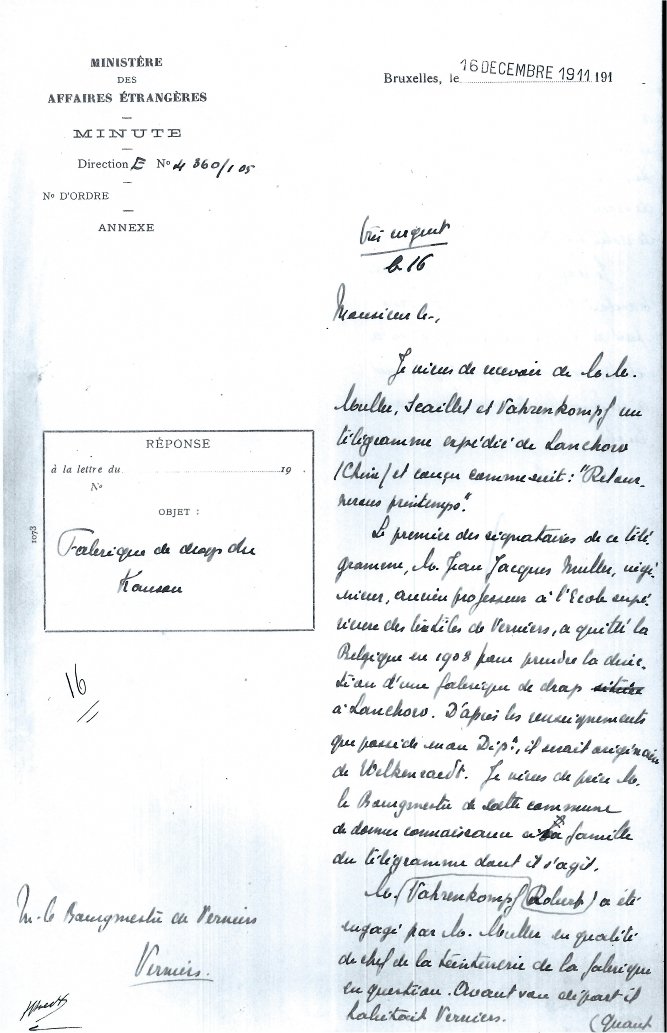 MINISTÈRE
DES
AFFAIRES ÉTRANGÈRES
MINUTE
Direction E Nº 4360/105
Nº D'ORDRE
ANNEXE
Bruxelles, le 16 DECEMBRE 1911 191
Très urgent
le 16
Monsieur le-,
Je viens de recevoir de M. M.
Muller, Scaillet et Vahrenkompf un
télégramme expédié de Lanchow
(Chine) et conçu comme suit : "Retour-
nerons printemps".
Le premier des signataires de ce télé-
gramme, M. Jean Jacques Muller, ingé-
nieur, ancien professeur à l'Ecole supé-
rieure des textiles de Verviers, a quitté la
Belgique en 1908 pour prendre la direc-
tion d'une fabrique de drap située
à Lanchow. D'après les renseignements
que possède mon Dépt, il serait originaire
de Welkenraedt. Je viens de prier M.
le Bourgmestre de cette commune
de donner connaissance à sa famille
du télégramme dont il s'agit.
M. (Vahrenkompf Robert) a été
engagé par M. Muller en qualité
de chef de la teinturerie de la fabrique
en question. Avant son départ il
habitait Verviers.
(Quant
RÉPONSE
à la lettre du 19
Nº
OBJET :
Fabrique de drap du
Kansou
1073
16
M. le Bourgmestre de Verviers
Verviers.